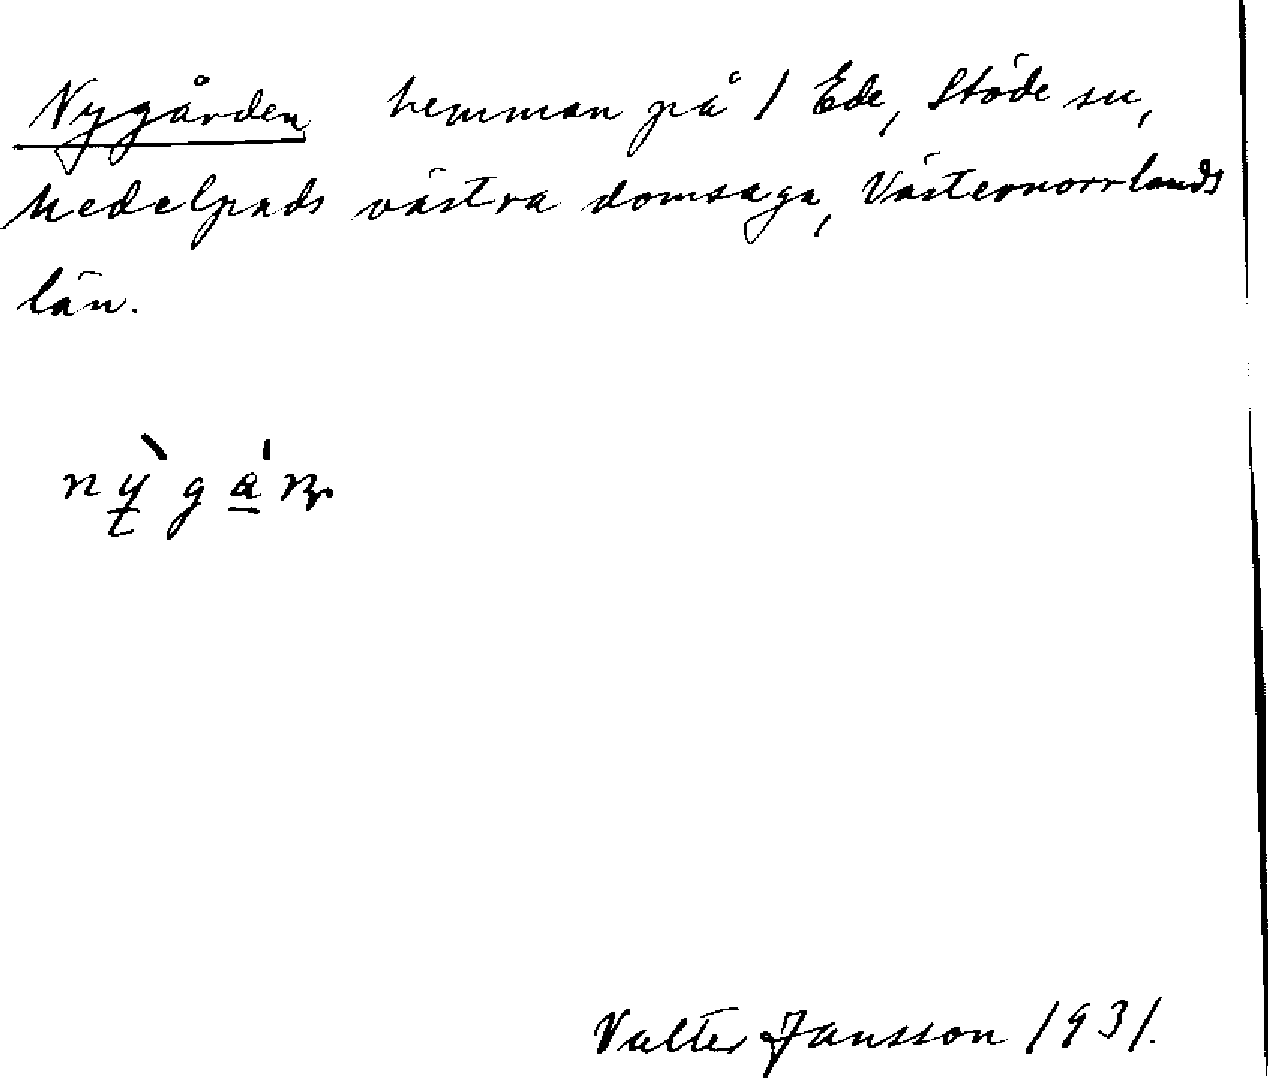 Nygården hemman på 1 Ede, Stöde sn,
Medelpads västra domsaga, Västernorrlands
län.
Valter Jansson 1931.